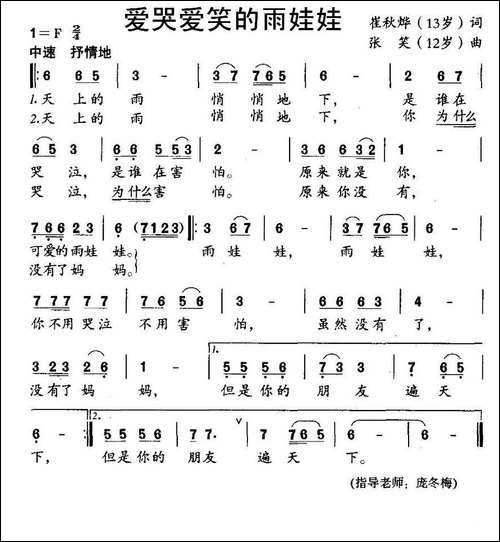 爱哭爱笑的雨娃娃
崔秋烨（13岁）词
1=F 2/4
张 笑（12岁）曲
中速 抒情地
‖: 6 6 5 | 3 - | 3 7 7 6 5 | 6 - | 6 6 5 |
1.天 上的 雨 悄 悄地 下， 是 谁在
2.天 上的 雨 悄 悄地 下， 你 为什么
6 5 3 | 6 6 5 5 3 | 2 - | 3 6 6 3 2 | 1 - |
哭 泣， 是谁 在害 怕。 原来就是 你，
哭 泣， 为什么害 怕。 原来你没 有，
7 6 6 2 3 | 6 (7 1 2 3) :‖: 3 6 7 | 6 - | 3 7 7 6 5 | 6 - |
可爱的雨娃 娃。 雨 娃 娃， 雨 娃 娃，
没有了妈 妈。
7 7 7 7 7 | 7 6 5 6 | 3 - | 6 6 6 3 | 4 - |
你不用哭泣 不用害 怕， 虽然没有 了，
1.
3 2 3 2 6 | 1 - | 5 5 5 6 | 3 7 | 7 6 5 |
没有了妈 妈， 但是你的 朋 友 遍 天
2.
6 - :‖ 5 5 5 6 | 7 7· ∨ | 7 7 6 5 | 6 - | 6 - ‖
下， 但是你的 朋友 遍 天 下。
(指导老师：庞冬梅)